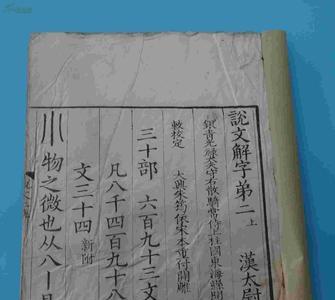 說文解字弟二上
漢太尉
銀青光祿大夫守右散騎常侍上柱國東海縣開
敕校定
大興朱筠依宋本重付開雕
三十部 六百九十三文
凡八千四百九十八
文三十四新附
物之微也从八丨見